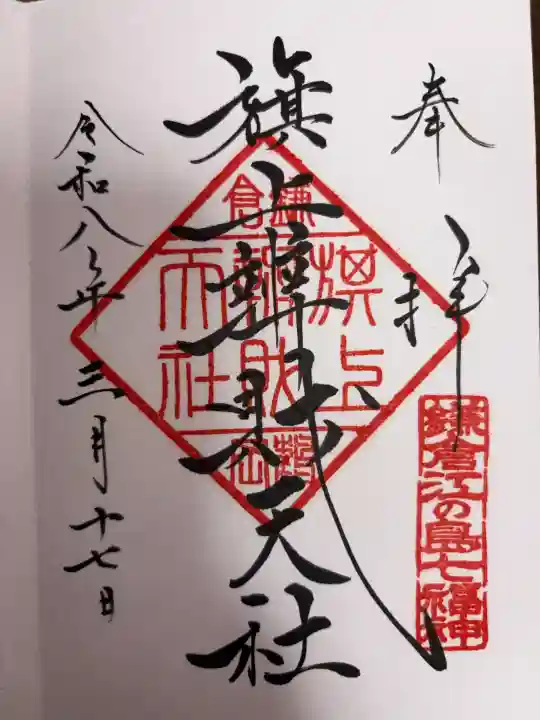 奉拝
鎌倉江の島七福神
旗上辨財天社
鎌倉
旗上
辨財
天社
令和八年三月十七日